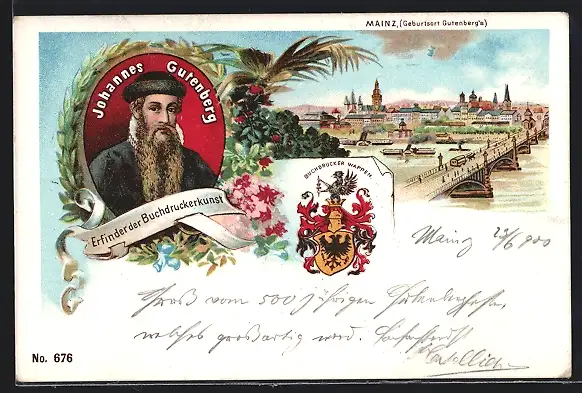 MAINZ, (Geburtsort Gutenberg's)
Johannes Gutenberg
Erfinder der Buchdruckerkunst
BUCHDRUCKER WAPPEN
Mainz 23/6 900
Gruß vom 500 jährigen Gutenbergfeste,
welches großartig wird.
No. 676